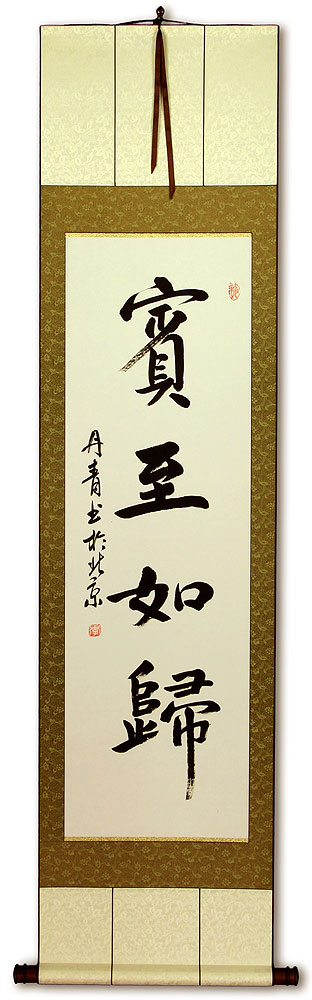 賓至如歸
丹青书於北京